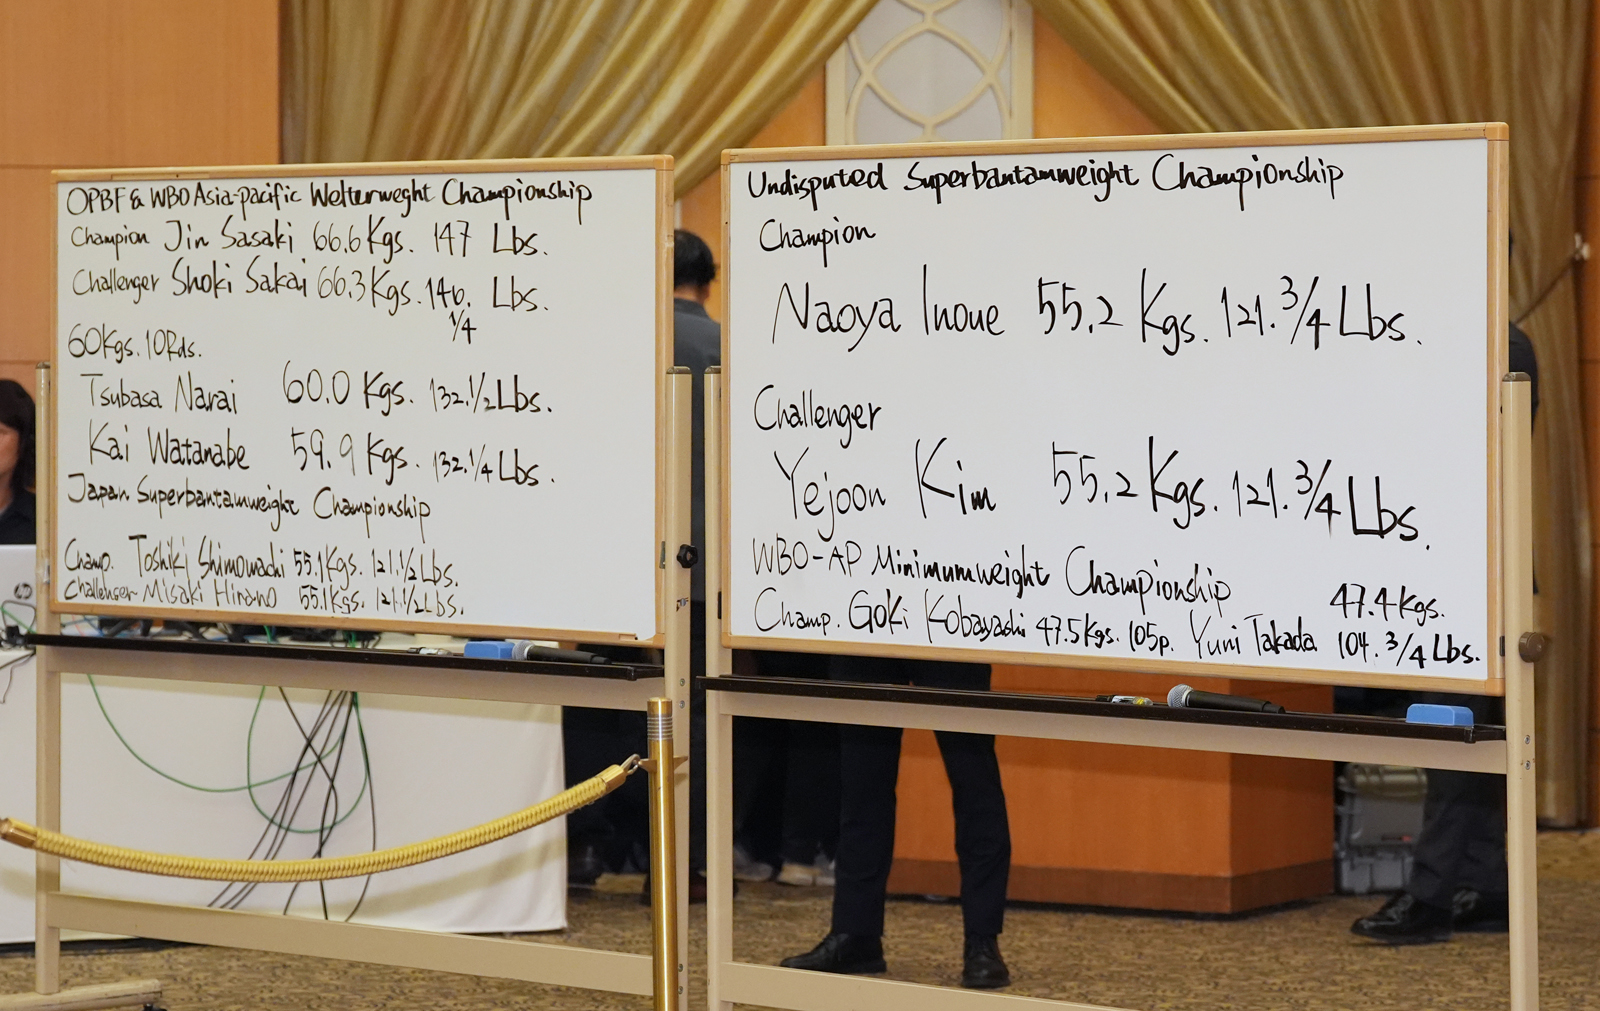 OPBF & WBO Asia-pacific Welterweght Championship
Champion Jin Sasaki 66.6 Kgs. 147 Lbs.
Challenger Shoki Sakai 66.3 Kgs. 146. 1/4 Lbs.
60Kgs. 10Rds.
Tsubasa Narai 60.0 Kgs. 132.1/2 Lbs.
Kai Watanabe 59.9 Kgs. 132.1/4 Lbs.
Japan Superbantamweight Championship
Champ. Toshiki Shimomachi 55.1 Kgs. 121.1/2 Lbs.
Challenger Misaki Hirano 55.1 Kgs. 121.1/2 Lbs.
Undisputed Superbantamweight Championship
Champion
Naoya Inoue 55.2 Kgs. 121.3/4 Lbs.
Challenger
Yejoon Kim 55.2 Kgs. 121.3/4 Lbs.
WBO-AP Minimumweight Championship
Champ. Goki Kobayashi 47.5 Kgs. 105p. Yuni Takada 47.4 Kgs. 104.3/4 Lbs.
hp